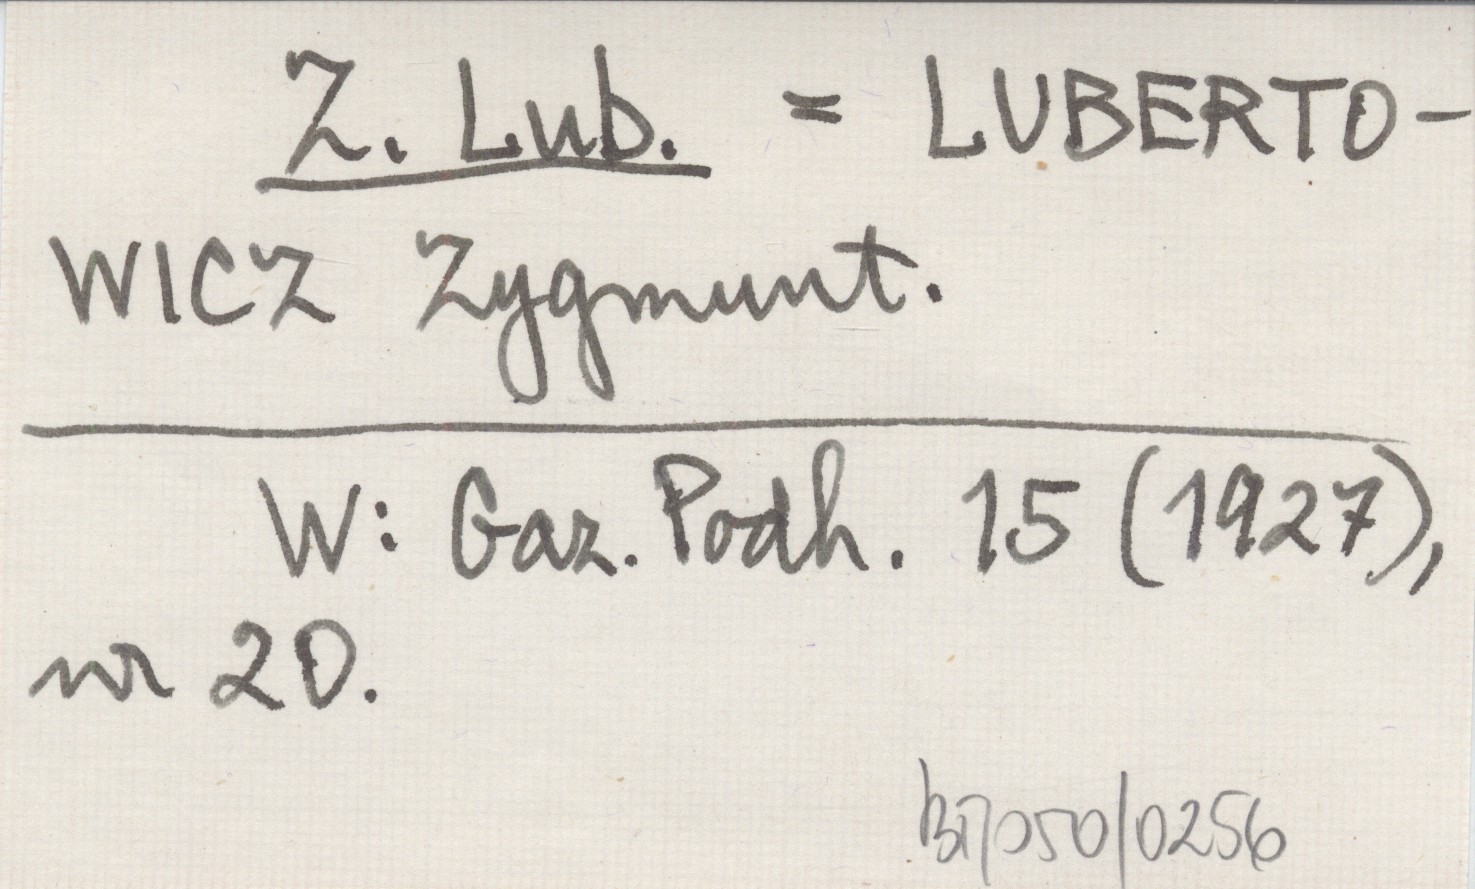 Z. Lub. = LUBERTO-
WICZ Zygmunt.
W: Gaz. Podh. 15 (1927),
nr 20.
BJ/050/0256